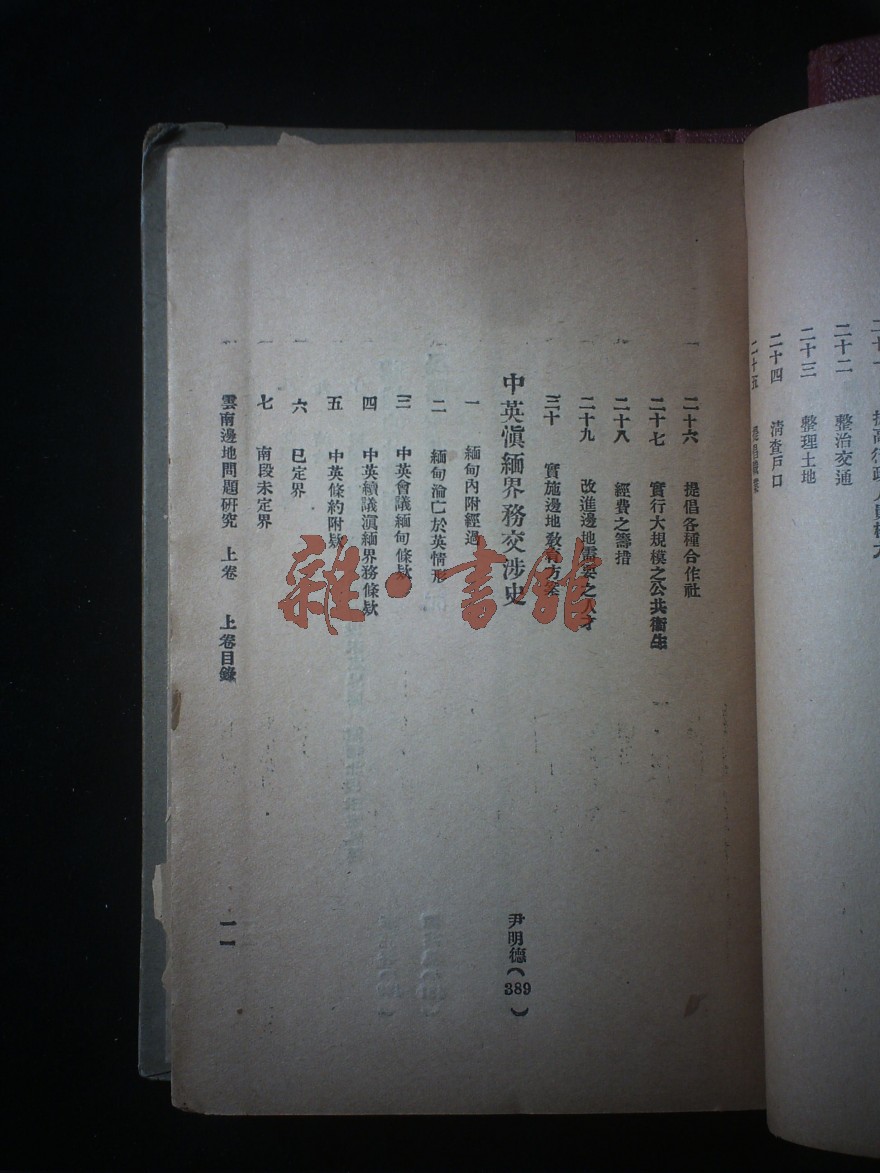 二十二　整治交通
二十三　整理土地
二十四　清查戶口
二十五
二十六　提倡各種合作社
二十七　實行大規模之公共衞生
二十八　經費之籌措
二十九　改進邊地需要之人才
三十　實施邊地教育方案
中英滇緬界務交涉史　尹明德（389）
一　緬甸內附經過
二　緬甸淪亡於英情形
三　中英會議緬甸條欵
四　中英續議滇緬界務條欵
五　中英條約附欵
六　已定界
七　南段未定界
雲南邊地問題研究　上卷　上卷目錄　一一
雜·書館